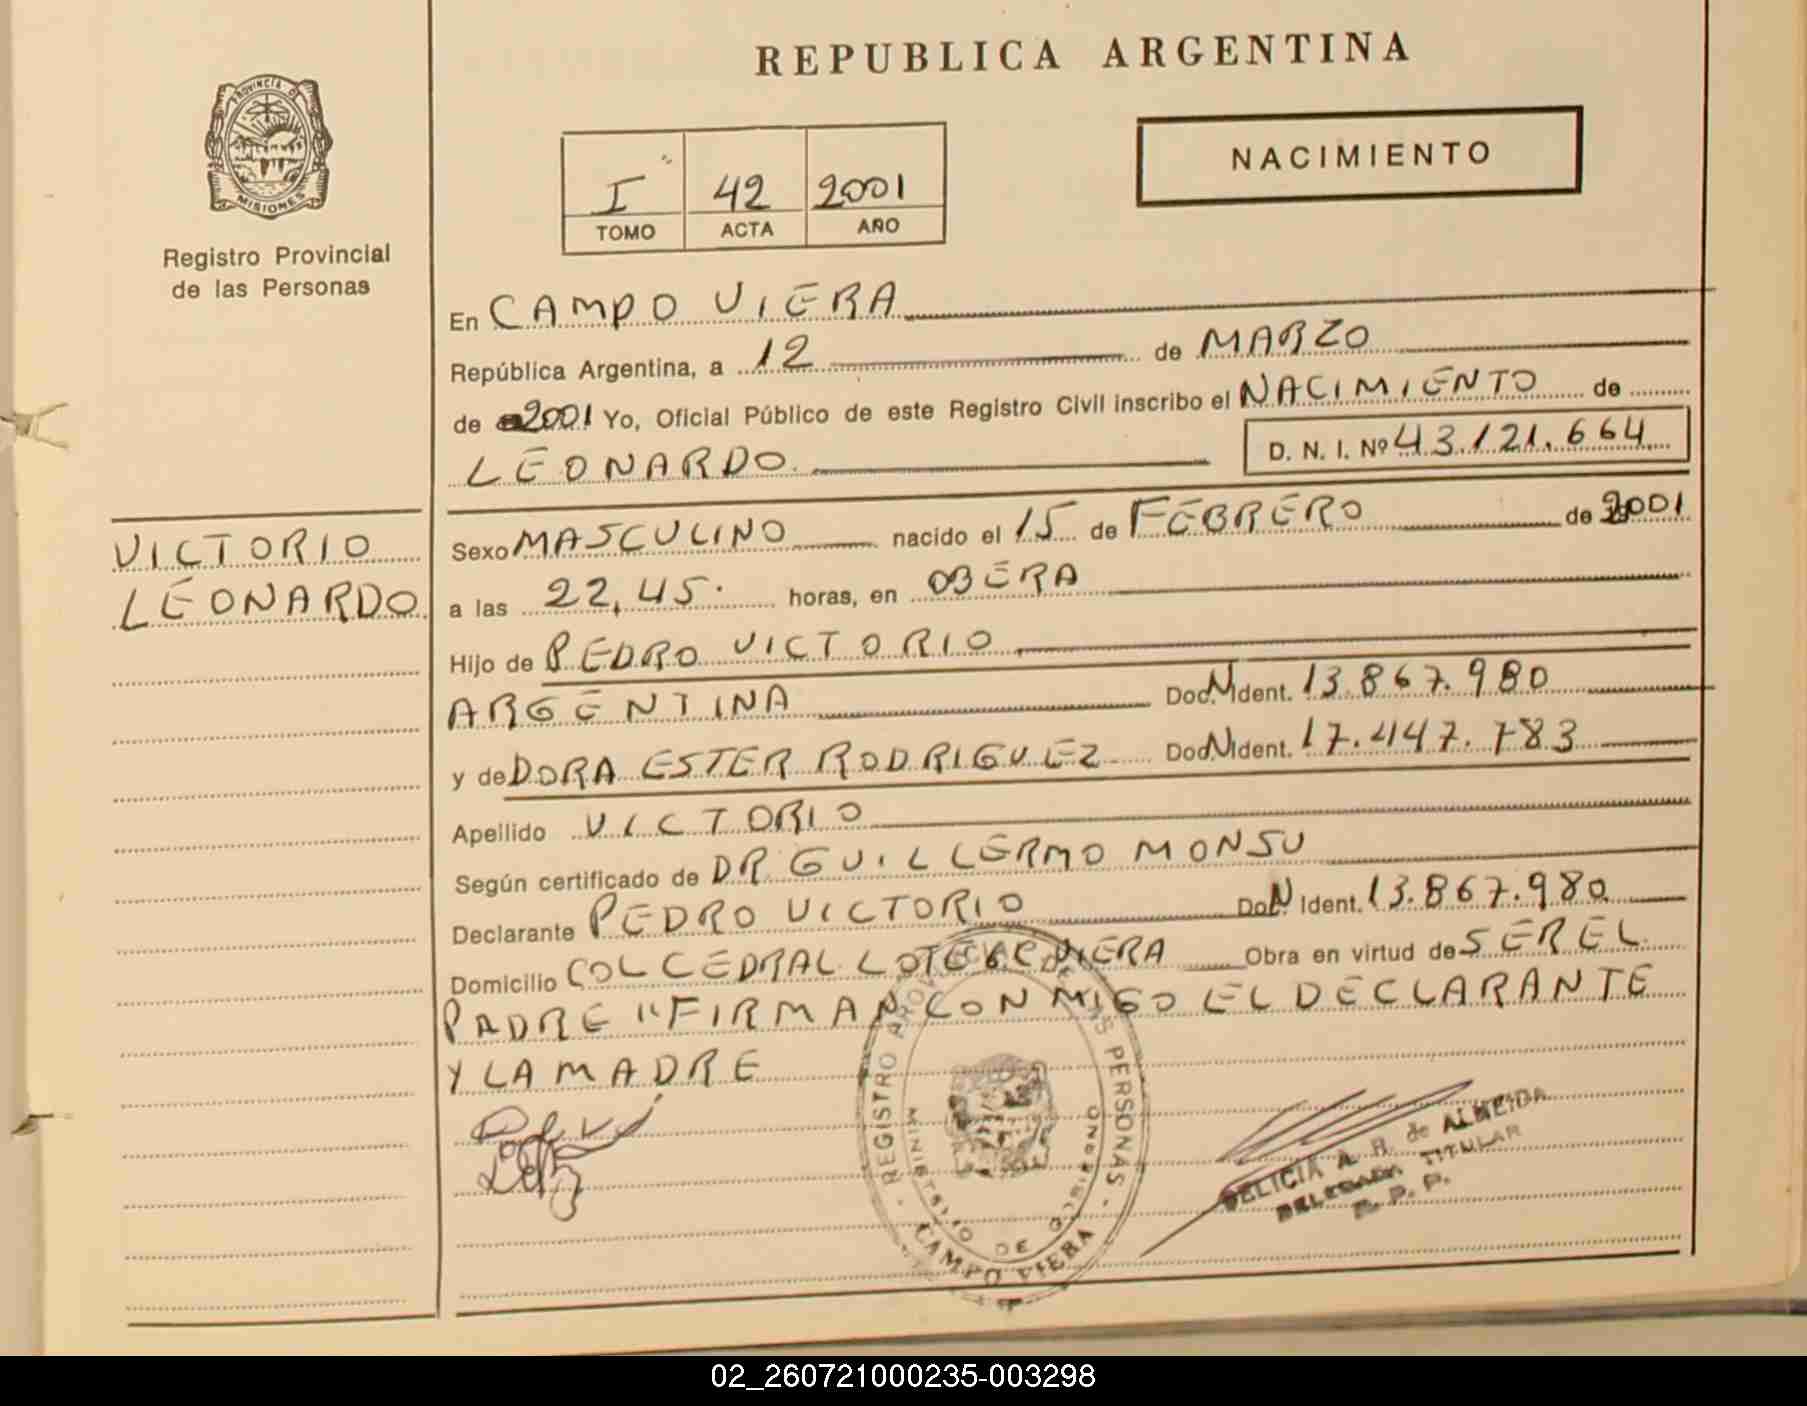 REPUBLICA ARGENTINA
PROVINCIA DE
MISIONES
Registro Provincial
de las Personas
I 42 2001
TOMO ACTA AÑO
NACIMIENTO
En CAMPO VIERA
República Argentina, a 12 de MARZO
de 2001 Yo, Oficial Público de este Registro Civil inscribo el NACIMIENTO de
LEONARDO. D. N. I. Nº 43.121.664
VICTORIO
LEONARDO
Sexo MASCULINO nacido el 15 de FEBRERO de 2001
a las 22,45. horas, en OBERA
Hijo de PEDRO VICTORIO
ARGENTINA Doc. N Ident. 13.867.980
y de DORA ESTER RODRIGUEZ Doc. N Ident. 17.447.783
Apellido VICTORIO
Según certificado de DR GUILLERMO MONSU
Declarante PEDRO VICTORIO Doc. N Ident. 13.867.980
Domicilio COL CEDRAL LOTE VIERA Obra en virtud de SER EL
PADRE "FIRMAN CON MIGO EL DECLARANTE
Y LA MADRE
REGISTRO PROVINCIAL DE LAS PERSONAS
MINISTERIO DE GOBIERNO
CAMPO VIERA
DELICIA A. R. de ALMEIDA
DELEGADA TITULAR
R. P. P.
02_260721000235-003298